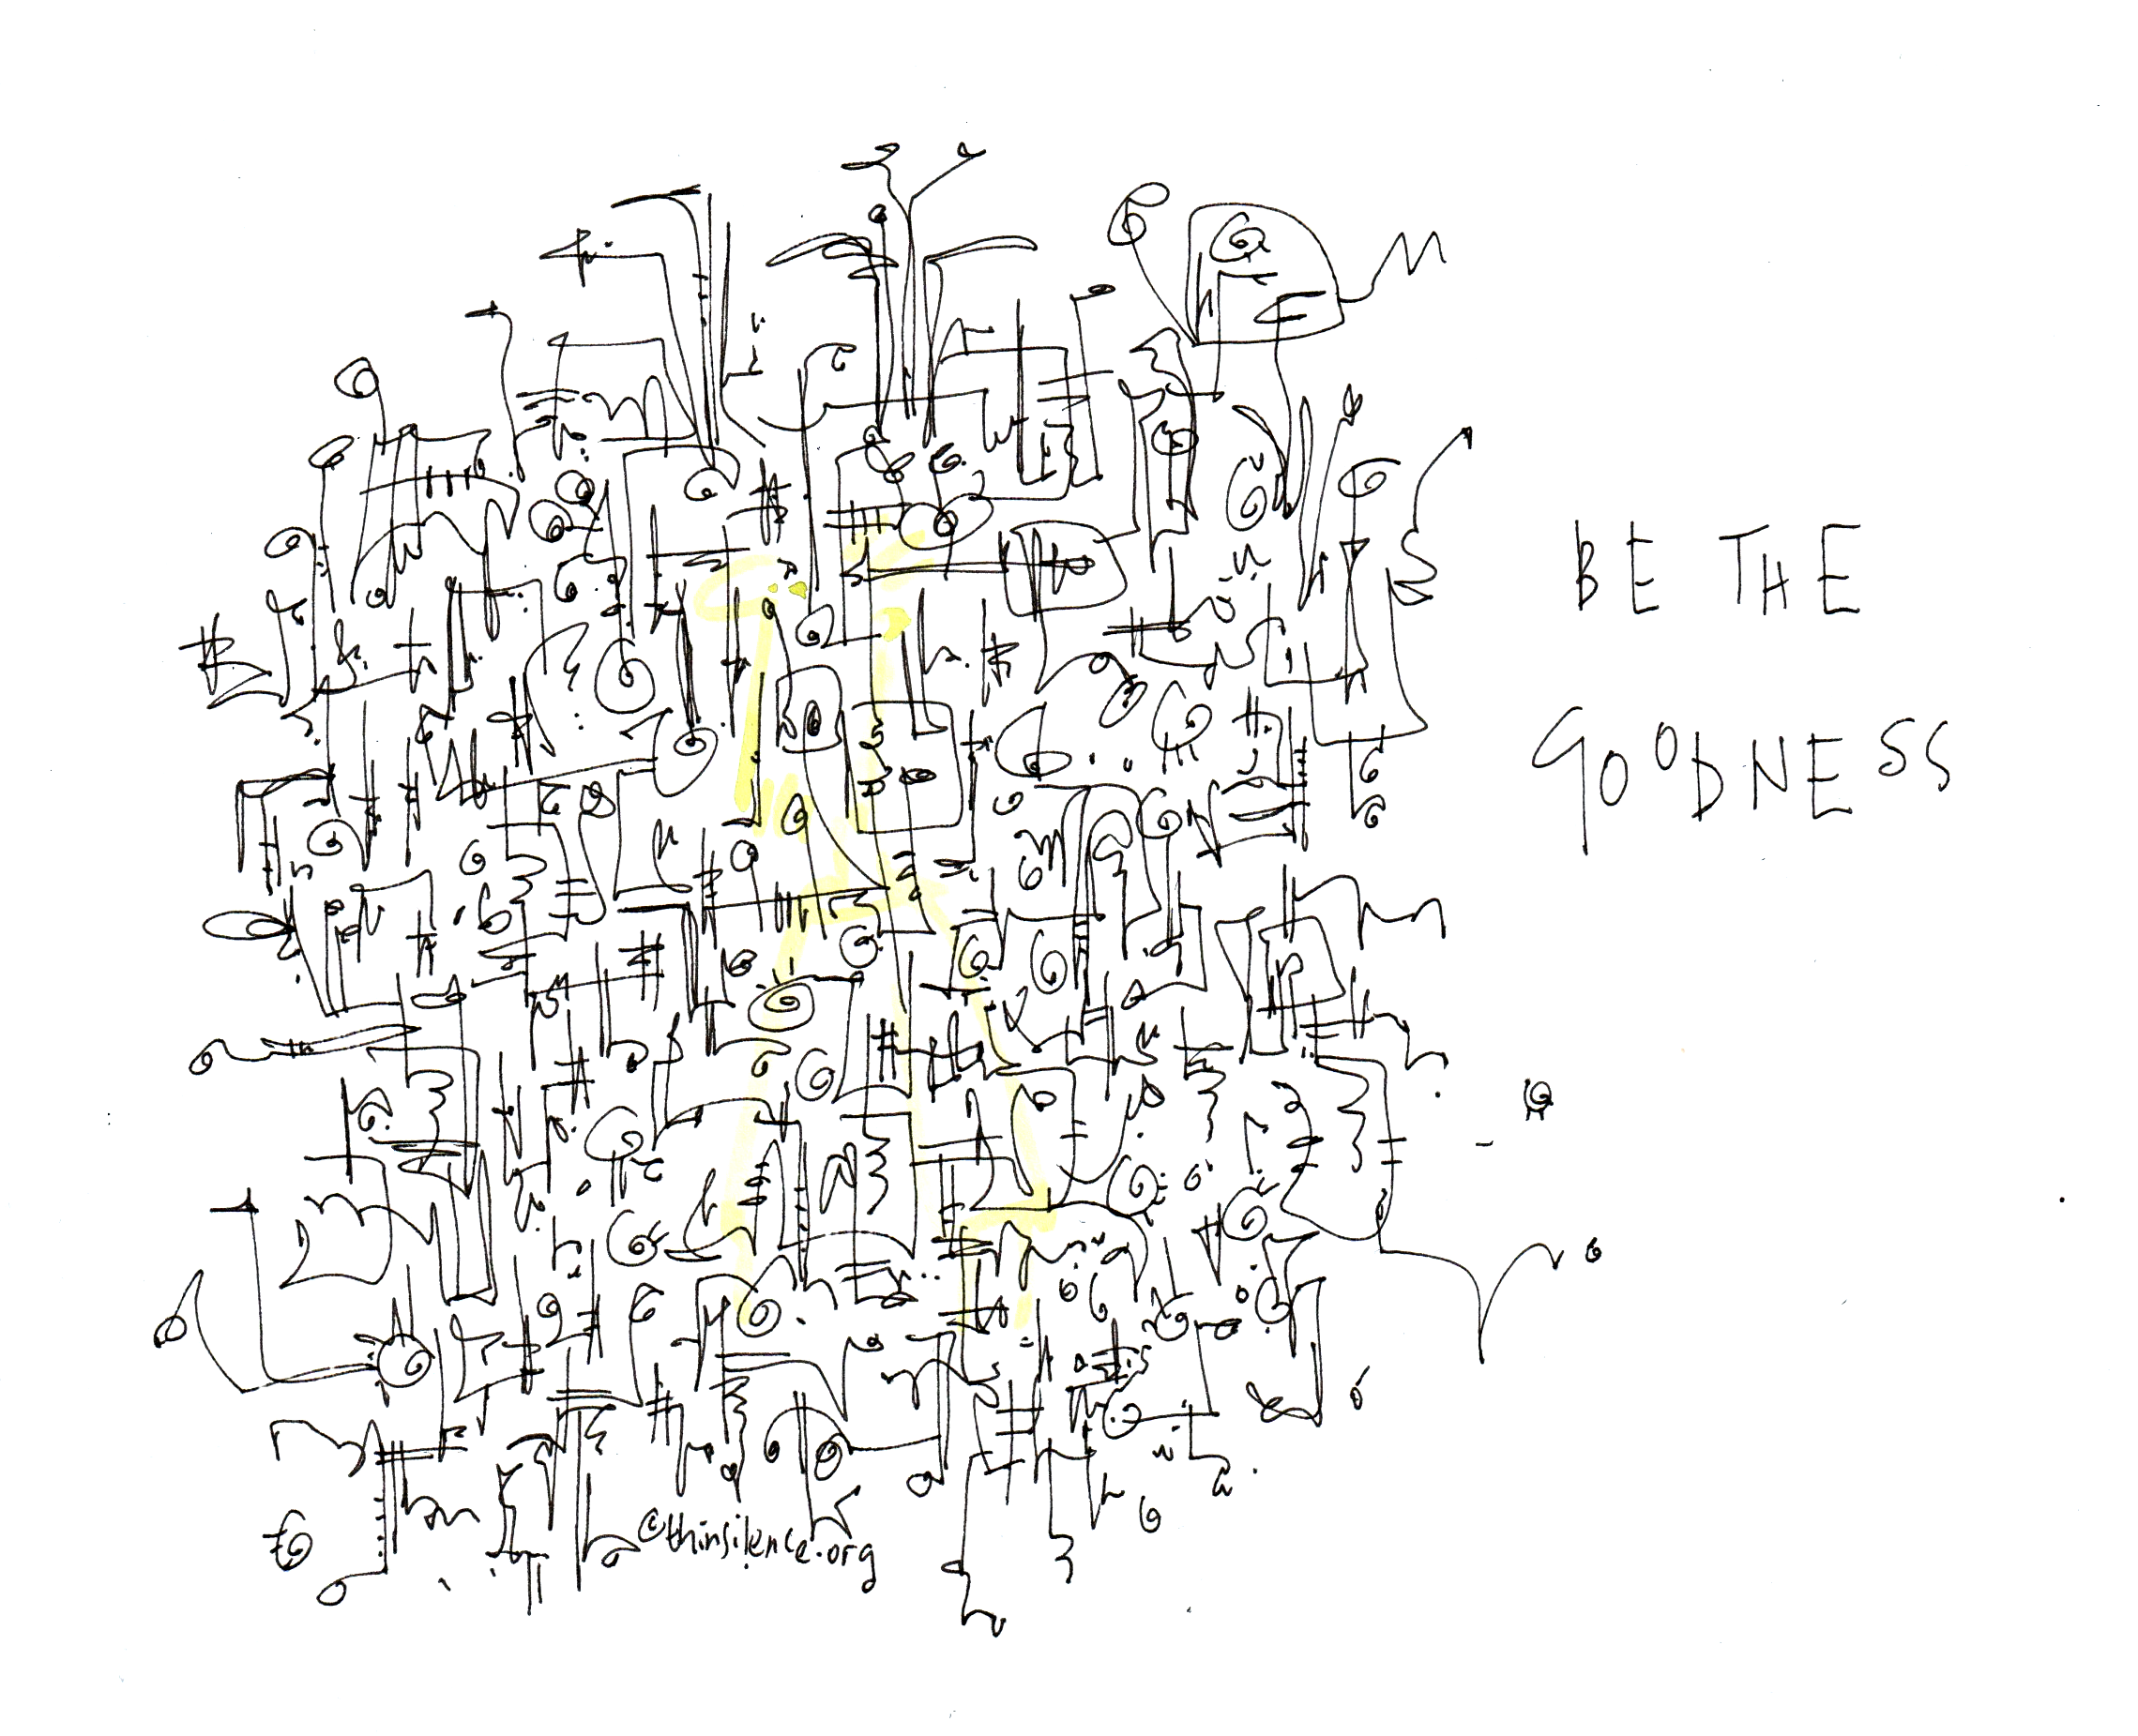 BE THE
GOODNESS
©thinsilence.org